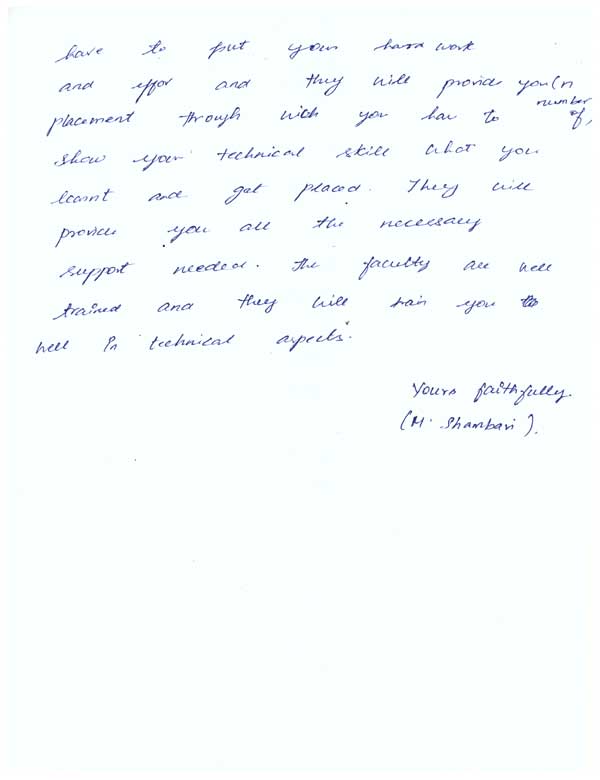 have to put your hard work
and effor and they will provide you (n
number of,
placement through wich you hav to
show your technical skill what you
learnt and get placed. They will
provide you all the necessary
support needed. The faculty are well
trained and they will train you
well in technical aspects.
Yours faithfully.
(M. Shambavi).